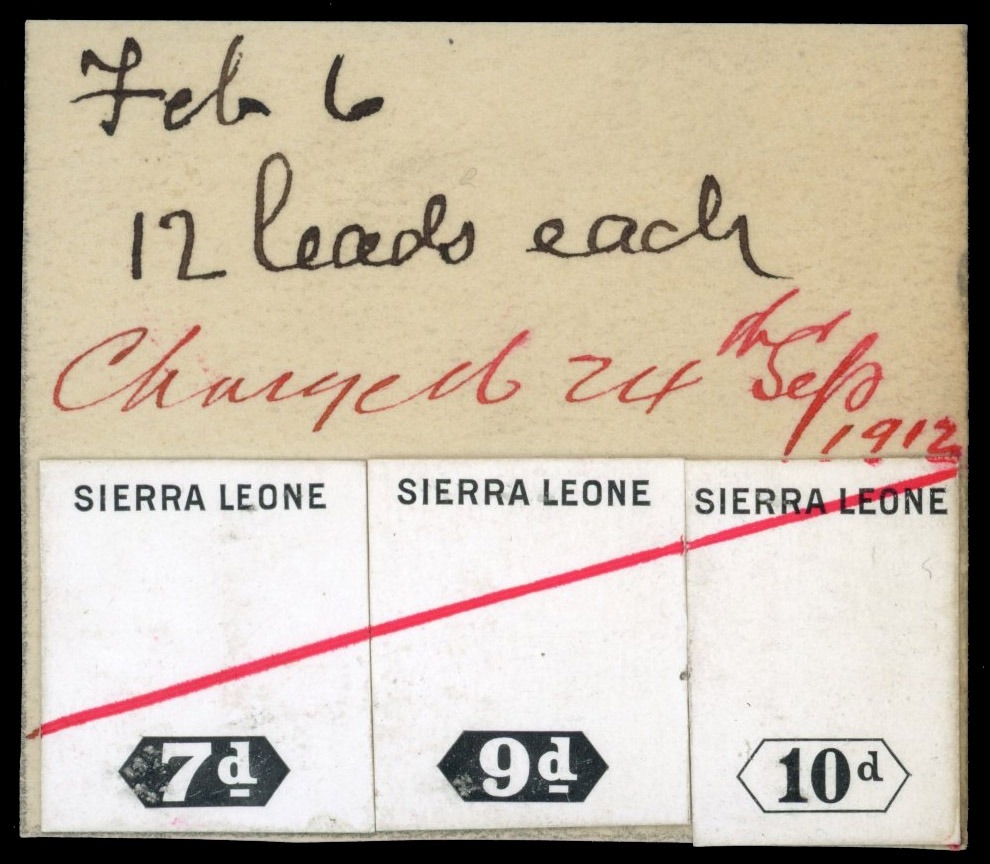 Feb 6
12 leads each
Charged 24th Sep
1912
SIERRA LEONE SIERRA LEONE SIERRA LEONE
7d 9d 10d